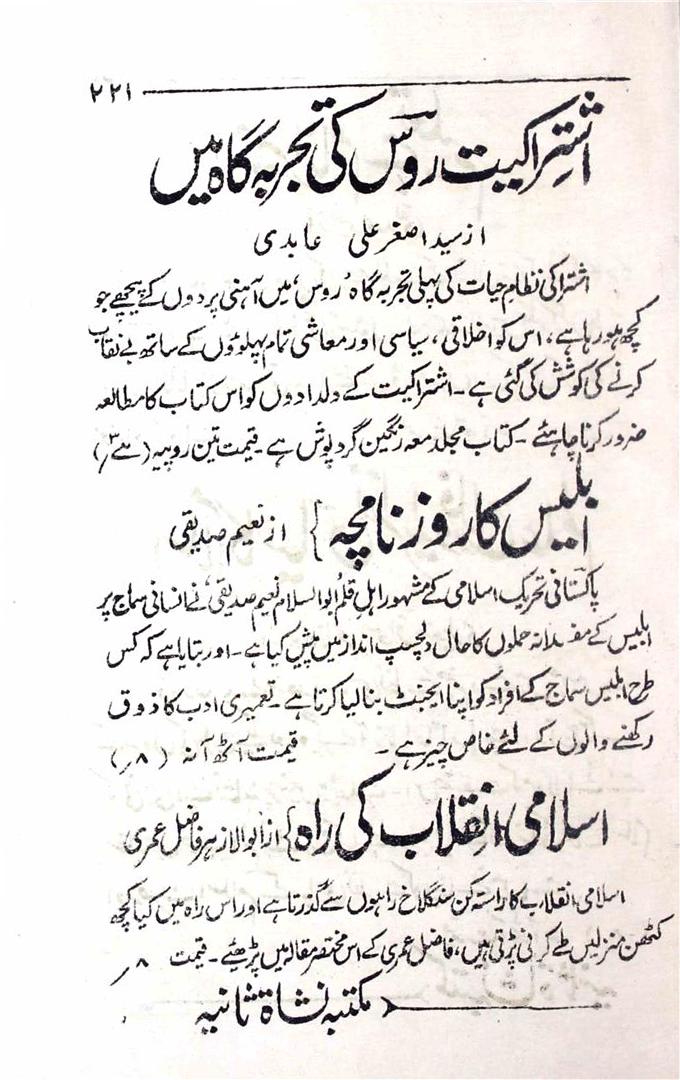 ۲۲۱
اشتراکیت روس کی تجربہ گاہ میں
از سید اصغر علی عابدی
اشتراکی نظام حیات کی پہلی تجربہ گاہ 'روس' میں آہنی پردوں کے پیچھے جو
کچھ ہو رہا ہے، اس کو اخلاقی، سیاسی اور معاشی تمام پہلوؤں کے ساتھ بے نقاب
کرنے کی کوشش کی گئی ہے۔ اشتراکیت کے دلدادوں کو اس کتاب کا مطالعہ
ضرور کرنا چاہئے۔ کتاب مجلد معہ رنگین گرد پوش ہے۔ قیمت تین روپیہ
ابلیس کا روزنامچہ } از نعیم صدیقی
پاکستانی تحریک اسلامی کے مشہور اہل قلم ابوالسلام نعیم صدیقی نے انسانی سماج پر
ابلیس کے مفسدانہ حملوں کا حال دلچسپ انداز میں پیش کیا ہے۔ اور بتایا ہے کہ کس
طرح ابلیس سماج کے افراد کو اپنا ایجنٹ بنا لیا کرتا ہے۔ تعمیری ادب کا ذوق
رکھنے والوں کے لئے خاص چیز ہے۔ قیمت آٹھ آنہ (۸؍)
اسلامی انقلاب کی راہ } از ابوالازہر فاضل عمری
اسلامی انقلاب کا راستہ کن سنگلاخ راہوں سے گذرتا ہے اور اس راہ میں کیا کچھ
کٹھن منزلیں طے کرنی پڑتی ہیں، فاضل عمری کے اس مختصر مقالہ میں پڑھئے۔ قیمت ۸؍
مکتبہ نشاۃ ثانیہ